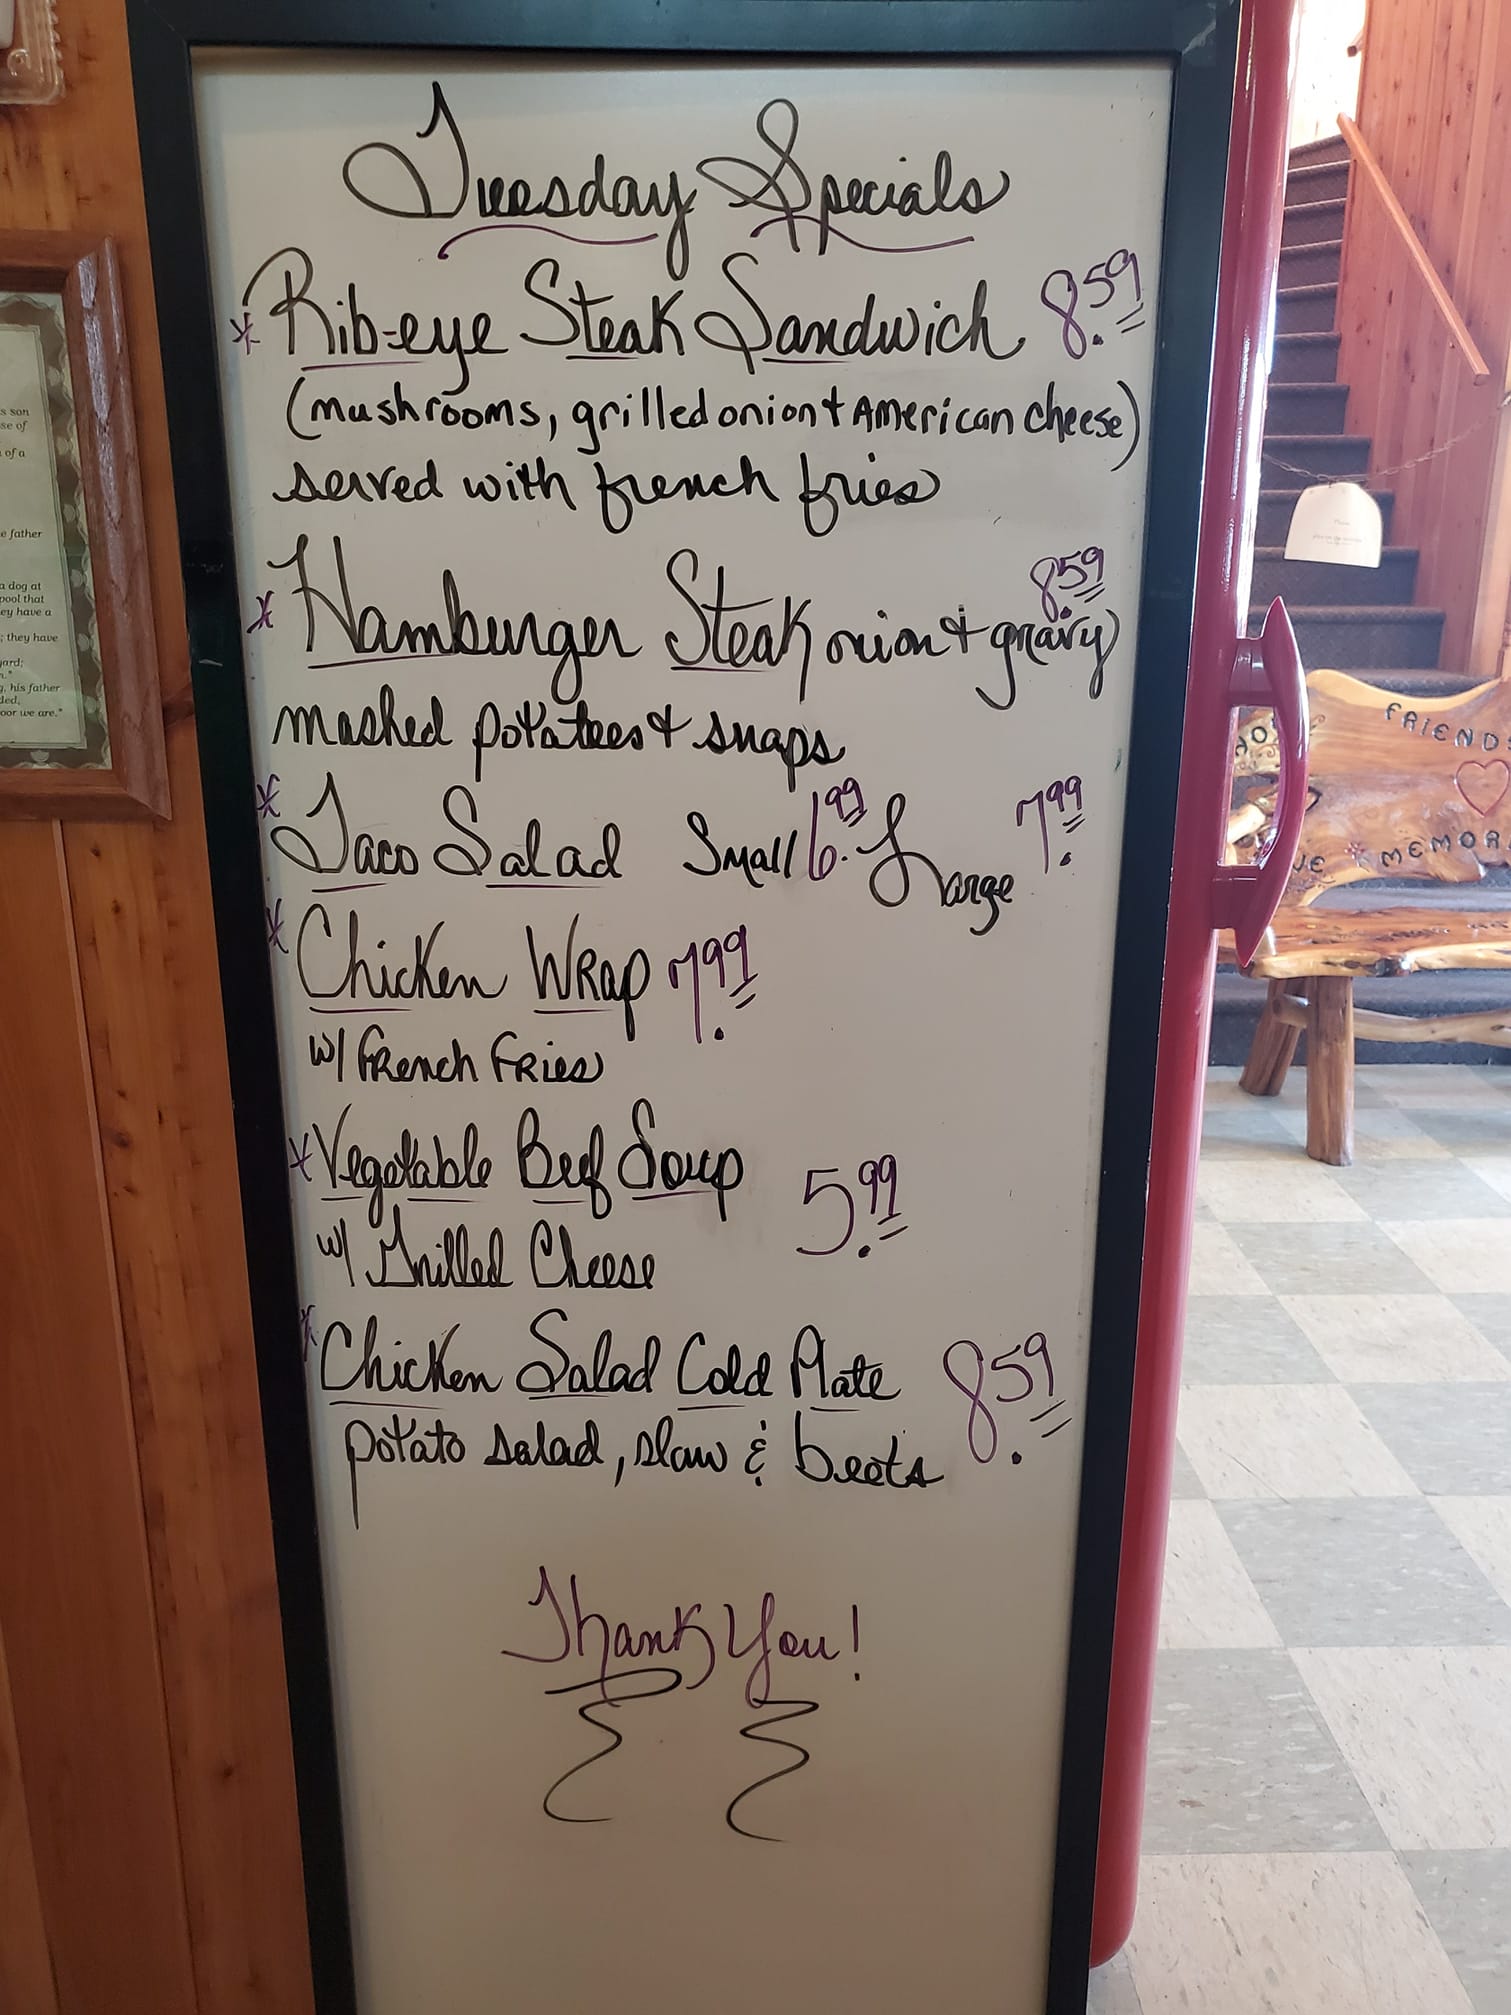 Tuesday Specials
* Rib-eye Steak Sandwich 8.59
(mushrooms, grilled onion & American cheese)
served with french fries
* Hamburger Steak onion & gravy 8.59
mashed potatoes & snaps
* Taco Salad Small 6.99 Large 7.99
* Chicken Wrap 7.99
w/ French Fries
* Vegetable Beef Soup 5.99
w/ Grilled Cheese
* Chicken Salad Cold Plate 8.59
potato salad, slaw & beets
Thank You!
s son
se of
of a
e father
a dog at
pool that
ey have a
; they have
yard;
g, his father
ded,
oor we are."
FRIENDS
MEMOR